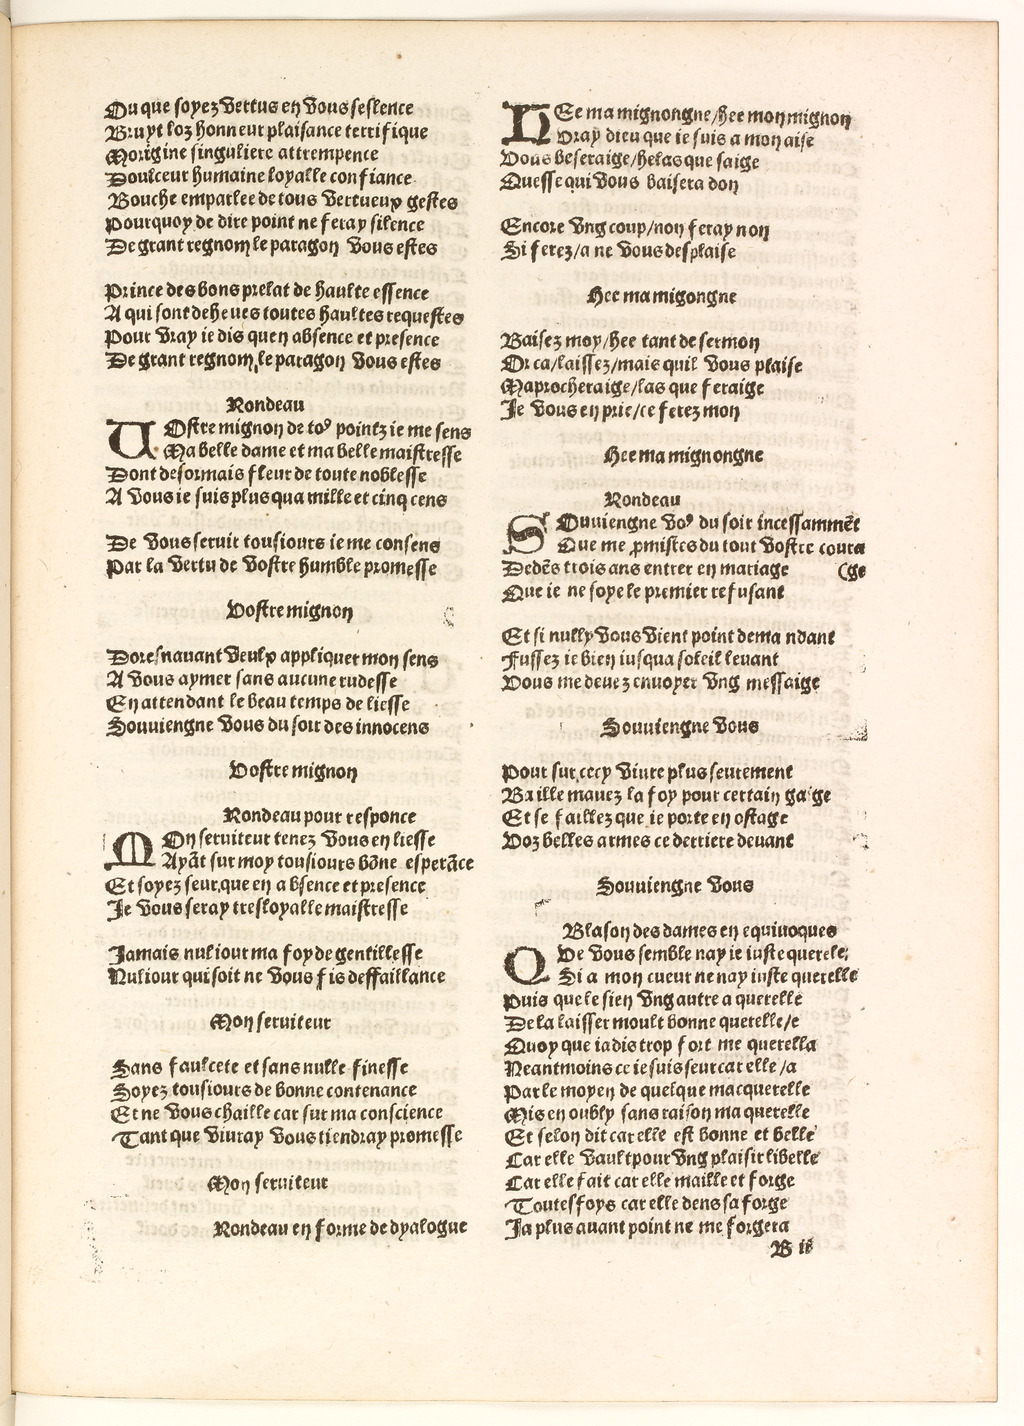 Ou que soyez vertus en vous seslence
Bruyt loz honneur plaisance terrifique
Morigine singuliere attrempence
Doulceur humaine loyalle confiance
Bouche emparlee de tous vertueux gestes
Pourquoy de dire point ne feray silence
De grant regnom le paragon vous estes
Prince des bons prelat de haulte essence
A qui sont deheues toutes haultes requestes
Pour vray ie dis quen absence et presence
De grant regnom, le paragon vous estes
Rondeau
VOstre mignon de toꝰ pointz ie me sens
Ma belle dame et ma belle maistresse
Dont desormais fleur de toute noblesse
A vous ie suis plus qua mille et cinq cens
De vous seruir tousiours ie me consens
Par la vertu de vostre humble promesse
Vostre mignon
Doresnauant veulx appliquer mon sens
A vous aymer sans aucune rudesse
En attendant le beau temps de liesse
Souuiengne vous du soir des innocens
Vostre mignon
Rondeau pour responce
MOn seruiteur tenez vous en liesse
Ayãt sur moy tousiours bõne esperãce
Et soyez seur, que en absence et presence
Je vous seray tresloyalle maistresse
Jamais nul iour ma foy de gentillesse
Nul iour qui soit ne vous fis deffaillance
Mon seruiteur
Sans faulcete et sans nulle finesse
Soyez tousiours de bonne contenance
Et ne vous chaille car sur ma conscience
Tant que viuray vous tiendray promesse
Mon seruiteur
Rondeau en forme de dyalogue
HEe ma mignongne/hee mon mignon
Vray dieu que ie suis a mon aise
Vous beseraige/helas que saige
Quesse qui vous baisera don
Encore vng coup/non feray non
Si ferez/a ne vous desplaise
Hee ma migongne
Baisez moy/hee tant de sermon
Or ca/laissez/mais quil vous plaise
Maprocheraige/las que feraige
Je vous en prie/ce ferez mon
Hee ma mignongne
Rondeau
SOuuiengne voꝰ du soir incessammẽt
Que me ꝑmistes du tout vostre coura
Dedẽs trois ans entrer en mariage (ge
Que ie ne soye le premier refusant
Et si nully vous vient point demandant
Fussez ie bien iusqua soleil leuant
Vous me deuez enuoyer vng messaige
Souuiengne vous
Pour sur cecy viure plus seurement
Baille mauez la foy pour certain gaige
Et se faillez que ie porte en ostage
Voz belles armes ce derriere deuant
Souuiengne vous
Blason des dames en equiuoques
QVe vous semble nay ie iuste querele;
Si a mon cueur ne nay iuste querelle
Puis que le sien vng autre a querelle
De la laisser moult bonne querelle/e
Quoy que iadis trop fort me querella
Neantmoins ce ie suis seur car elle /a
Par le moyen de quelque macquerelle
Mis en oubly sans raison ma querelle
Et selon dit car elle est bonne et belle
Car elle vault pour vng plaisir libelle
Car elle fait car elle maille et forge
Toutesfoys car elle dens sa forge
Ja plus auant point ne me forgera
B ii